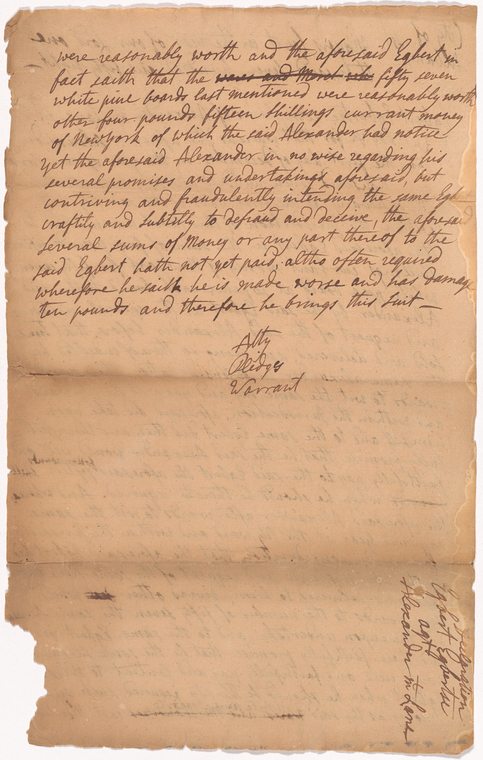 were reasonably worth and the aforesaid Egbert in
fact saith that the wares and Merch fifty seven
white pine boards last mentioned were reasonably worth
other four pounds fifteen shillings currant money
of Newyork of which the said Alexander had notice
yet the aforesaid Alexander in no wise regarding his
several promises and undertakings aforesaid, but
contriving and fraudulently intending the same Eg
craftily and subtstly to defraud and deceive, the aforesaid
several sums of Money or any part thereof to the
said Egbert hath not yet paid, altho often required
wherefore he saith he is made worse and has damage
ten pounds and therefore he brings this suit
Atty
Pledges
Warrant
Egbert Egbertse
agt
Alexander McLane